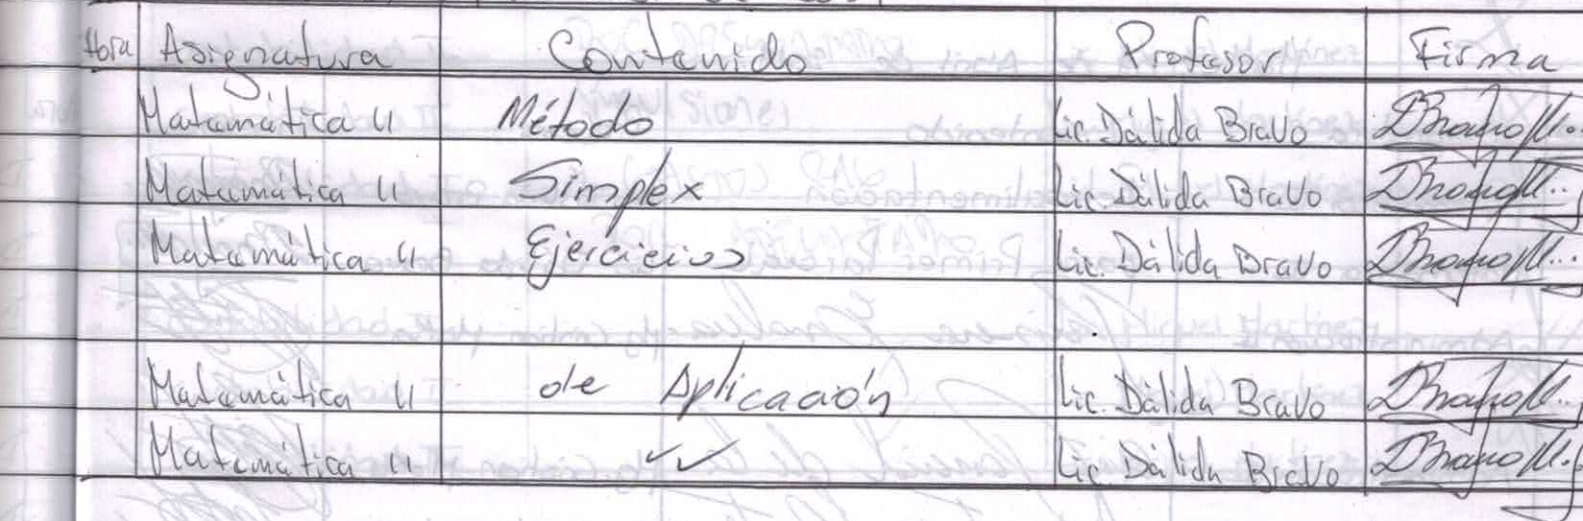 Hora Asignatura Contenido Profesor Firma
Matemática II Método Lic. Dálida Bravo
Matemática II Simplex Lic. Dálida Bravo
Matemática II Ejercicios Lic. Dálida Bravo
Matemática II de Aplicación Lic. Dálida Bravo
Matemática II ✓✓ Lic. Dálida Bravo